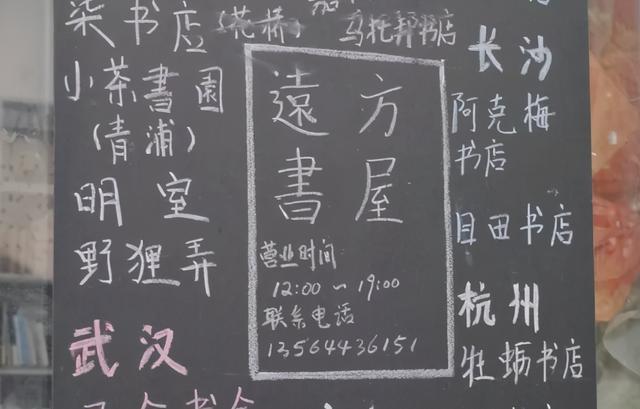 柒书店（花桥）
小茶書園
（青浦）
明室
野狸弄
武汉
乌托邦书店
遠方
書屋
营业时间
12:00～19:00
联系电话
13564436151
长沙
阿克梅
书店
目田书店
杭州
牡蛎书店